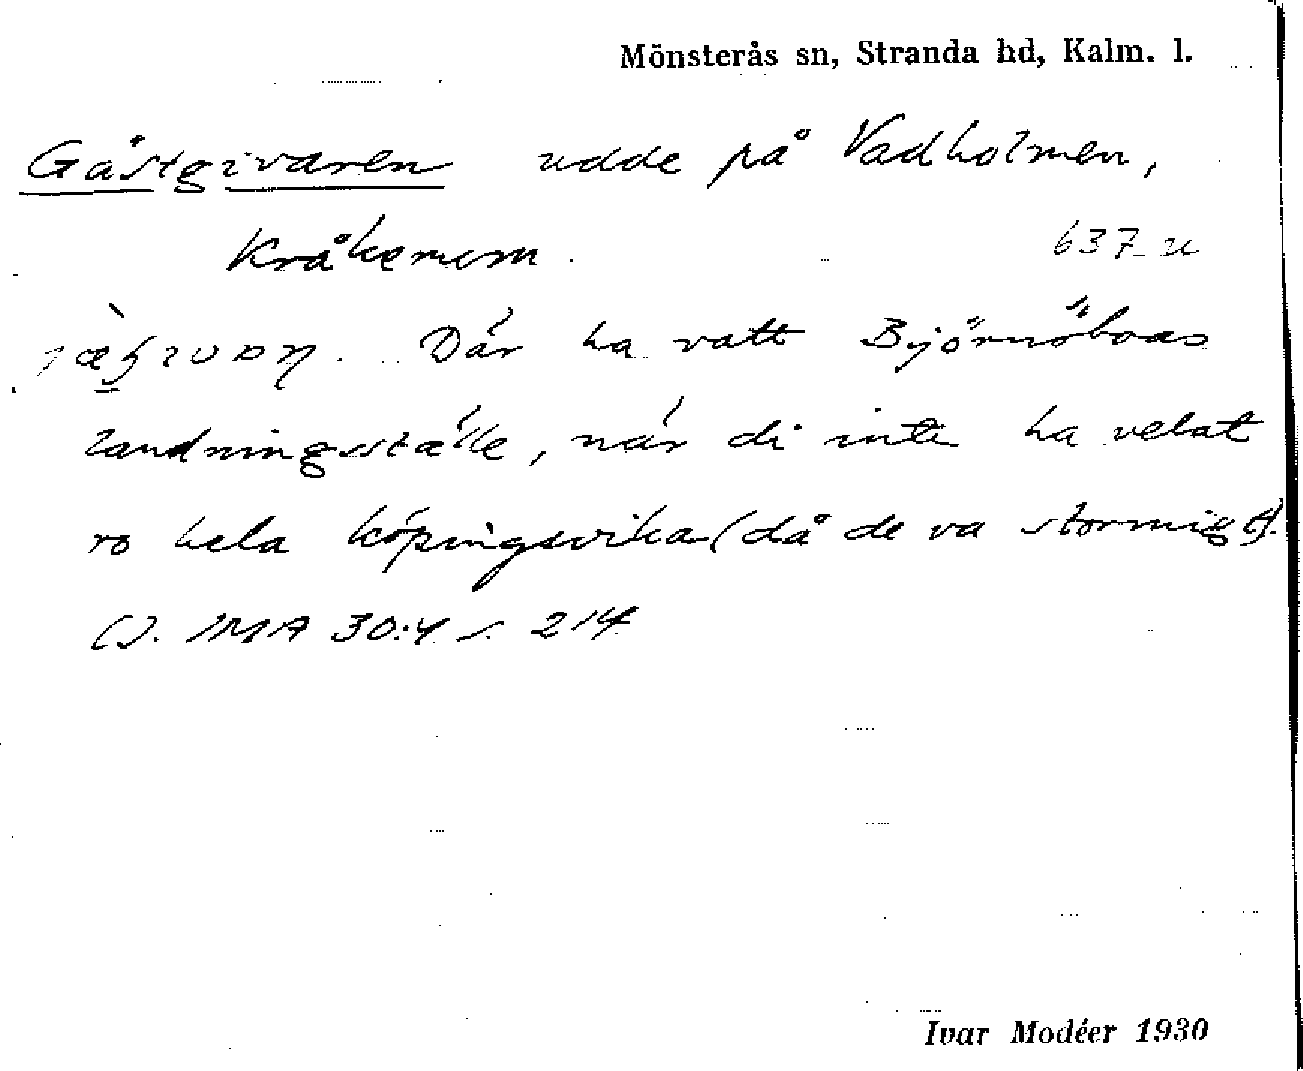 Mönsterås sn, Stranda hd, Kalm. l.
Gästgivaren udde på Vadholmen,
Kråkenäm. 637 u
Där ha vatt Björnöboas
landningsställe, när di inte ha velat
ro hela köpingsvika (då de va stormigt).
( ). IMA 30:4 s. 214
Ivar Modéer 1930